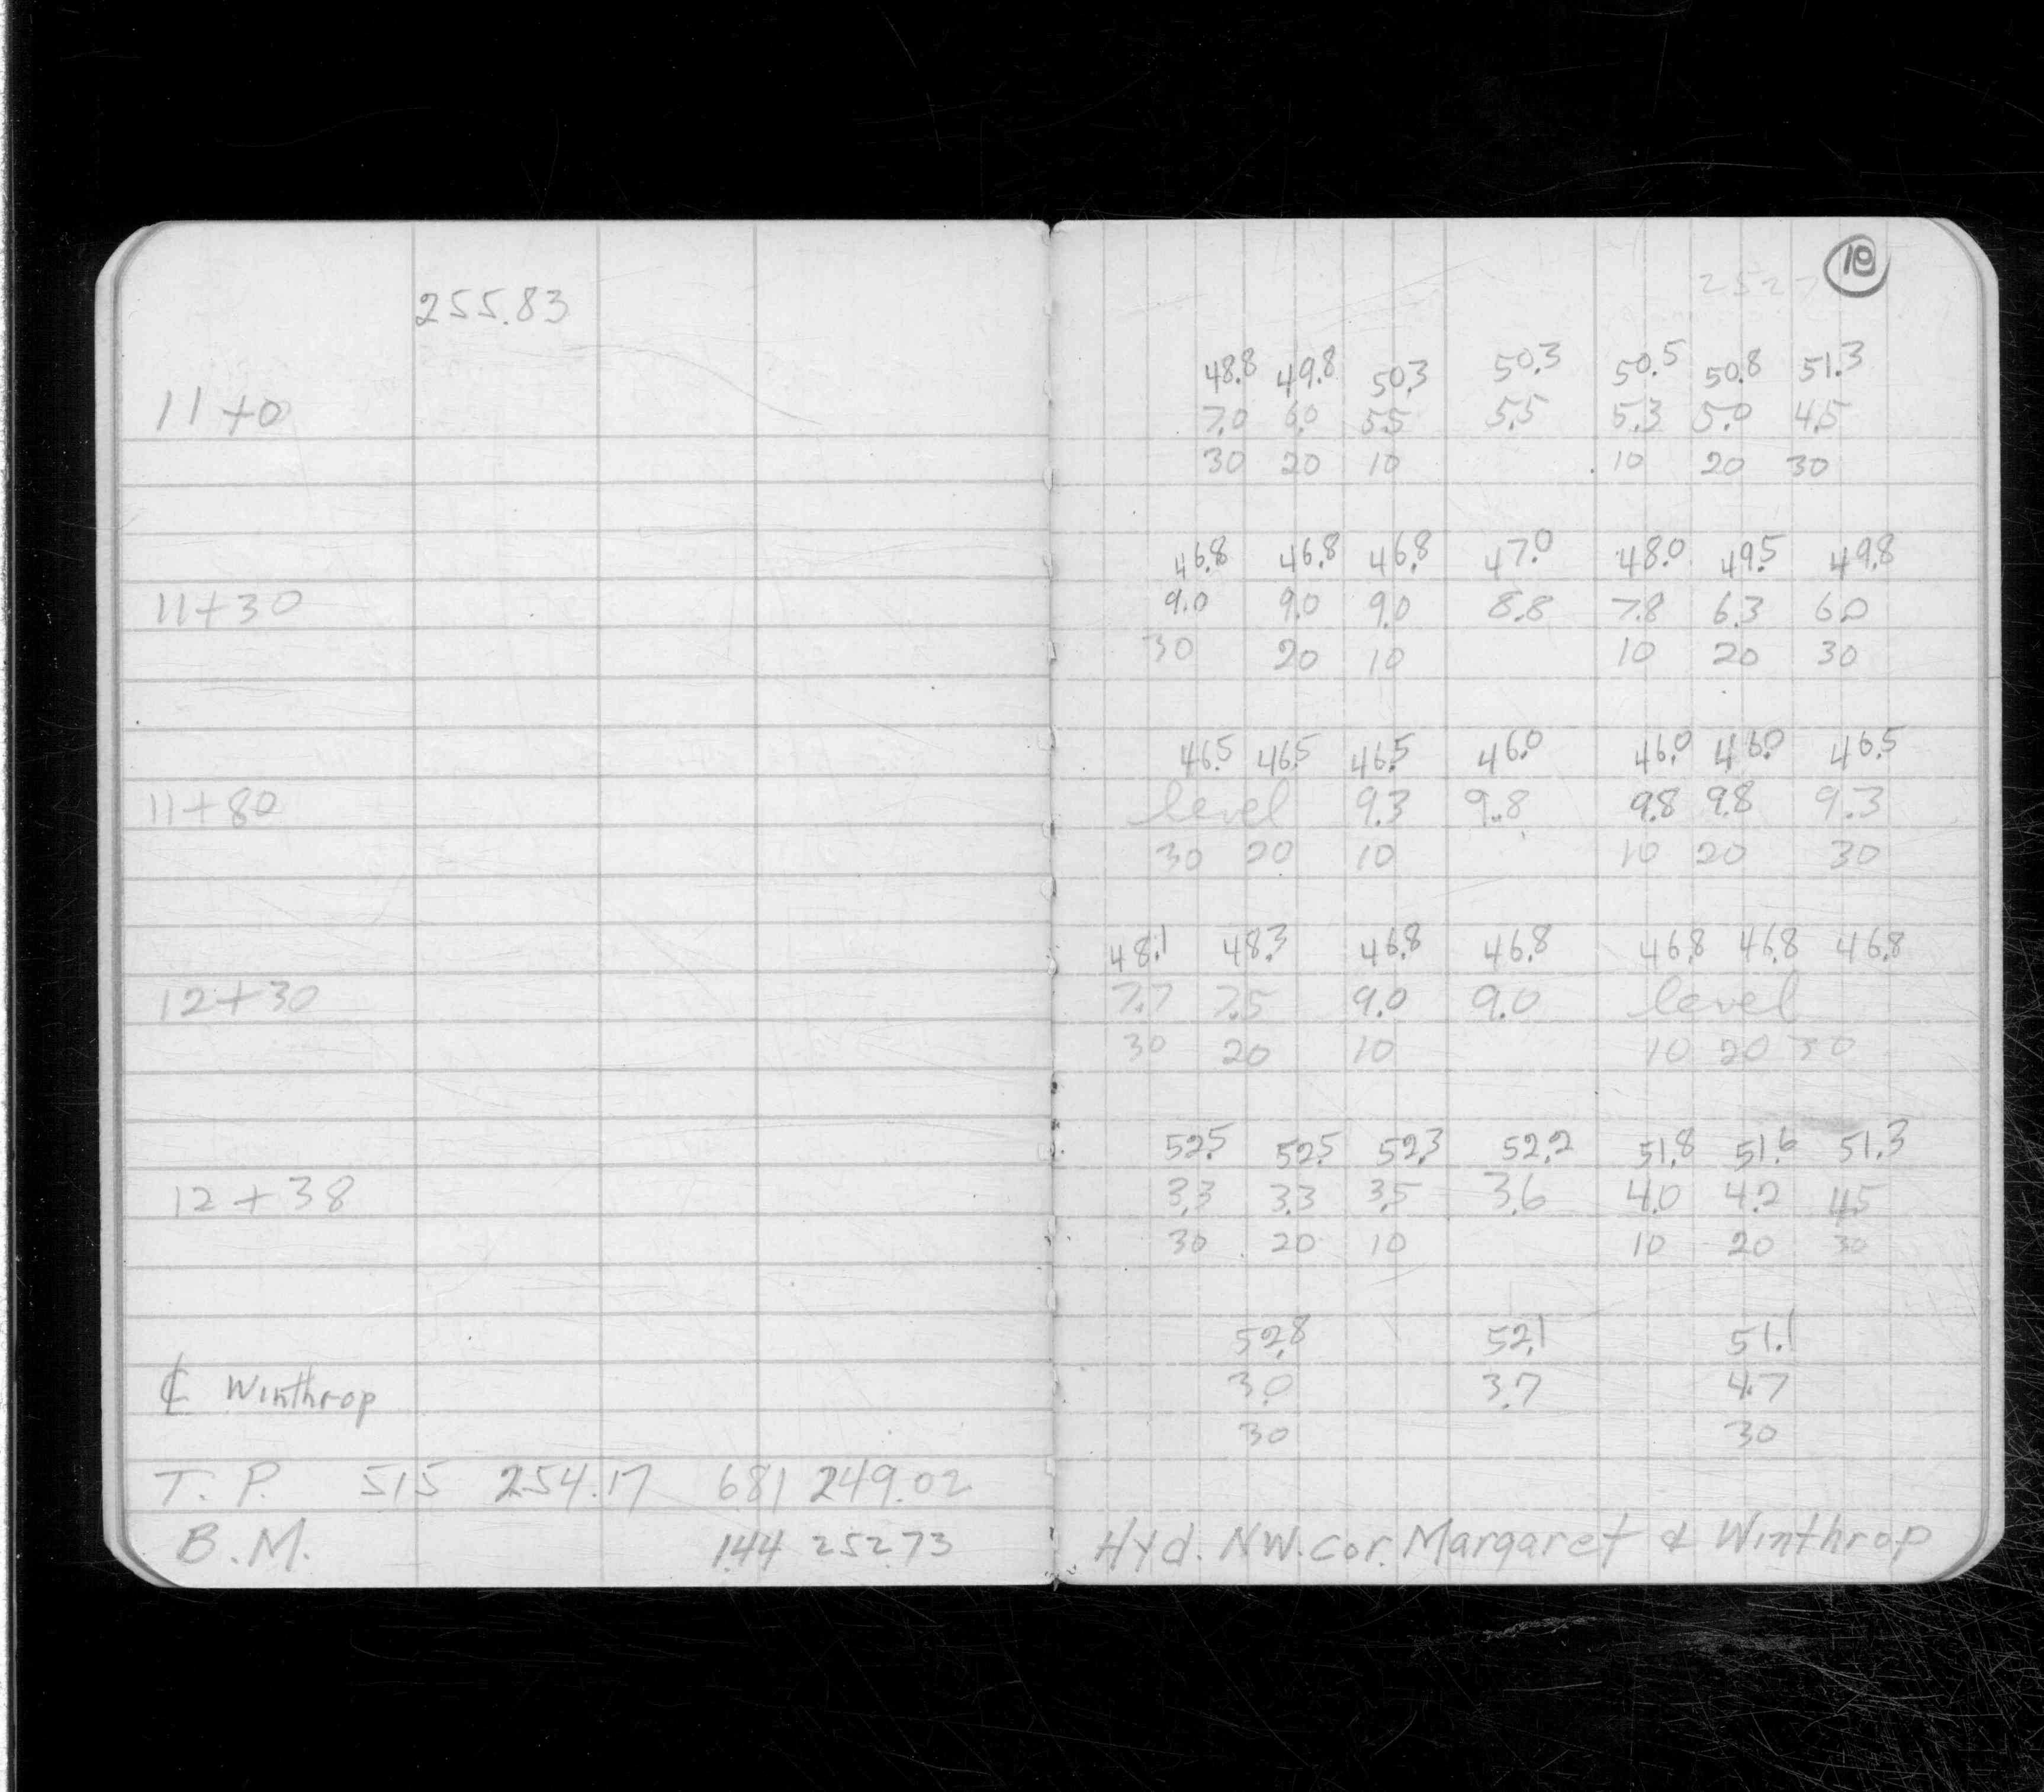 10
2527
255.83
48.8 49.8 50.3 50.3 50.5 50.8 51.3
11+0 7.0 6.0 5.5 5.5 5.3 5.0 4.5
30 20 10 10 20 30
46.8 46.8 46.8 47.0 48.0 49.5 49.8
11+30 9.0 9.0 9.0 8.8 7.8 6.3 6.0
30 20 10 10 20 30
46.5 46.5 46.5 46.0 46.0 46.0 46.5
11+80 level 9.3 9.8 9.8 9.8 9.3
30 20 10 10 20 30
48.1 48.3 46.8 46.8 46.8 46.8 46.8
12+30 7.7 7.5 9.0 9.0 level
30 20 10 10 20 30
52.5 52.5 52.3 52.2 51.8 51.6 51.3
12+38 3.3 3.3 3.5 3.6 4.0 4.2 4.5
30 20 10 10 20 30
52.8 52.1 51.1
℄ Winthrop 3.0 3.7 4.7
30 30
T. P. 515 254.17 681 249.02
B.M. 1.44 252.73 Hyd. NW. Cor. Margaret & Winthrop